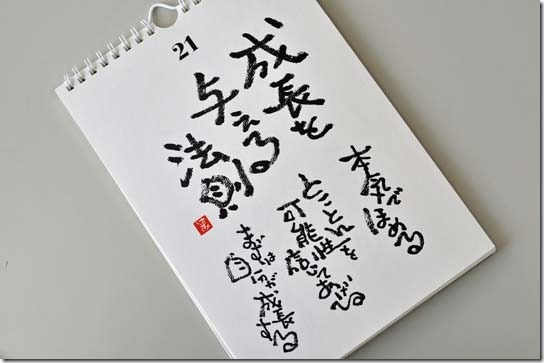 21
成長を
与える
法則
本気で
ほめる
とことん
可能性を
信じてあげる
まずは
自分が
成長する